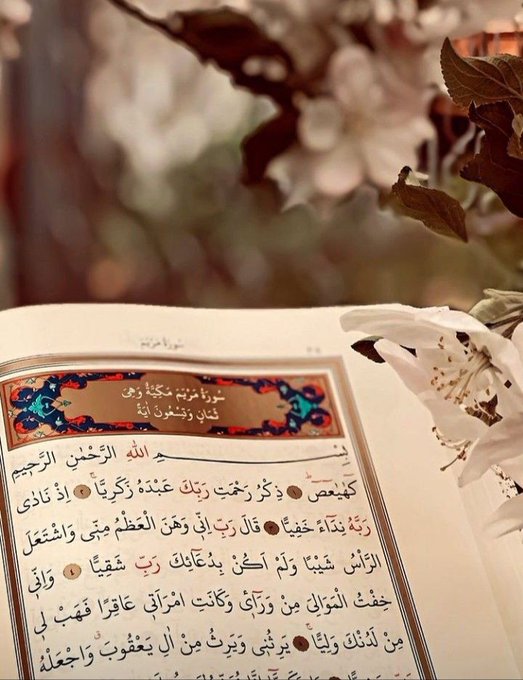 سورة مريم
سُورَةُ مَرْيَمَ مَكِّيَّةٌ وَهِيَ
ثَمَانٍ وَتِسْعُونَ اٰيَةً
بِسْمِ اللّٰهِ الرَّحْمٰنِ الرَّحِيمِ
كٓهٰيٰعٓصٓ ١ ذِكْرُ رَحْمَتِ رَبِّكَ عَبْدَهُ زَكَرِيَّاۚ ٢ اِذْ نَادٰى
رَبَّهُ نِدَٓاءً خَفِيًّا ٣ قَالَ رَبِّ اِنّ۪ي وَهَنَ الْعَظْمُ مِنّ۪ي وَاشْتَعَلَ
الرَّأْسُ شَيْبًا وَلَمْ اَكُنْ بِدُعَٓائِكَ رَبِّ شَقِيًّا ٤ وَاِنّ۪ي
خِفْتُ الْمَوَالِيَ مِنْ وَرَٓاء۪ي وَكَانَتِ امْرَاَت۪ي عَاقِرًا فَهَبْ ل۪ي
مِنْ لَدُنْكَ وَلِيًّاۙ ٥ يَرِثُن۪ي وَيَرِثُ مِنْ اٰلِ يَعْقُوبَۗ وَاجْعَلْهُ